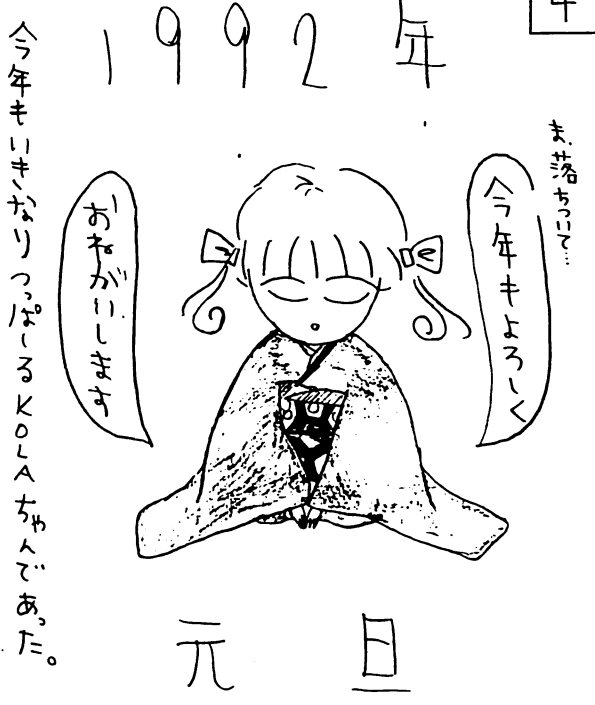 1992年
ま、落ちついて…
今年もよろしく
おねがいします
今年もいきなりつっぱしるKOLAちゃんであった。
元旦